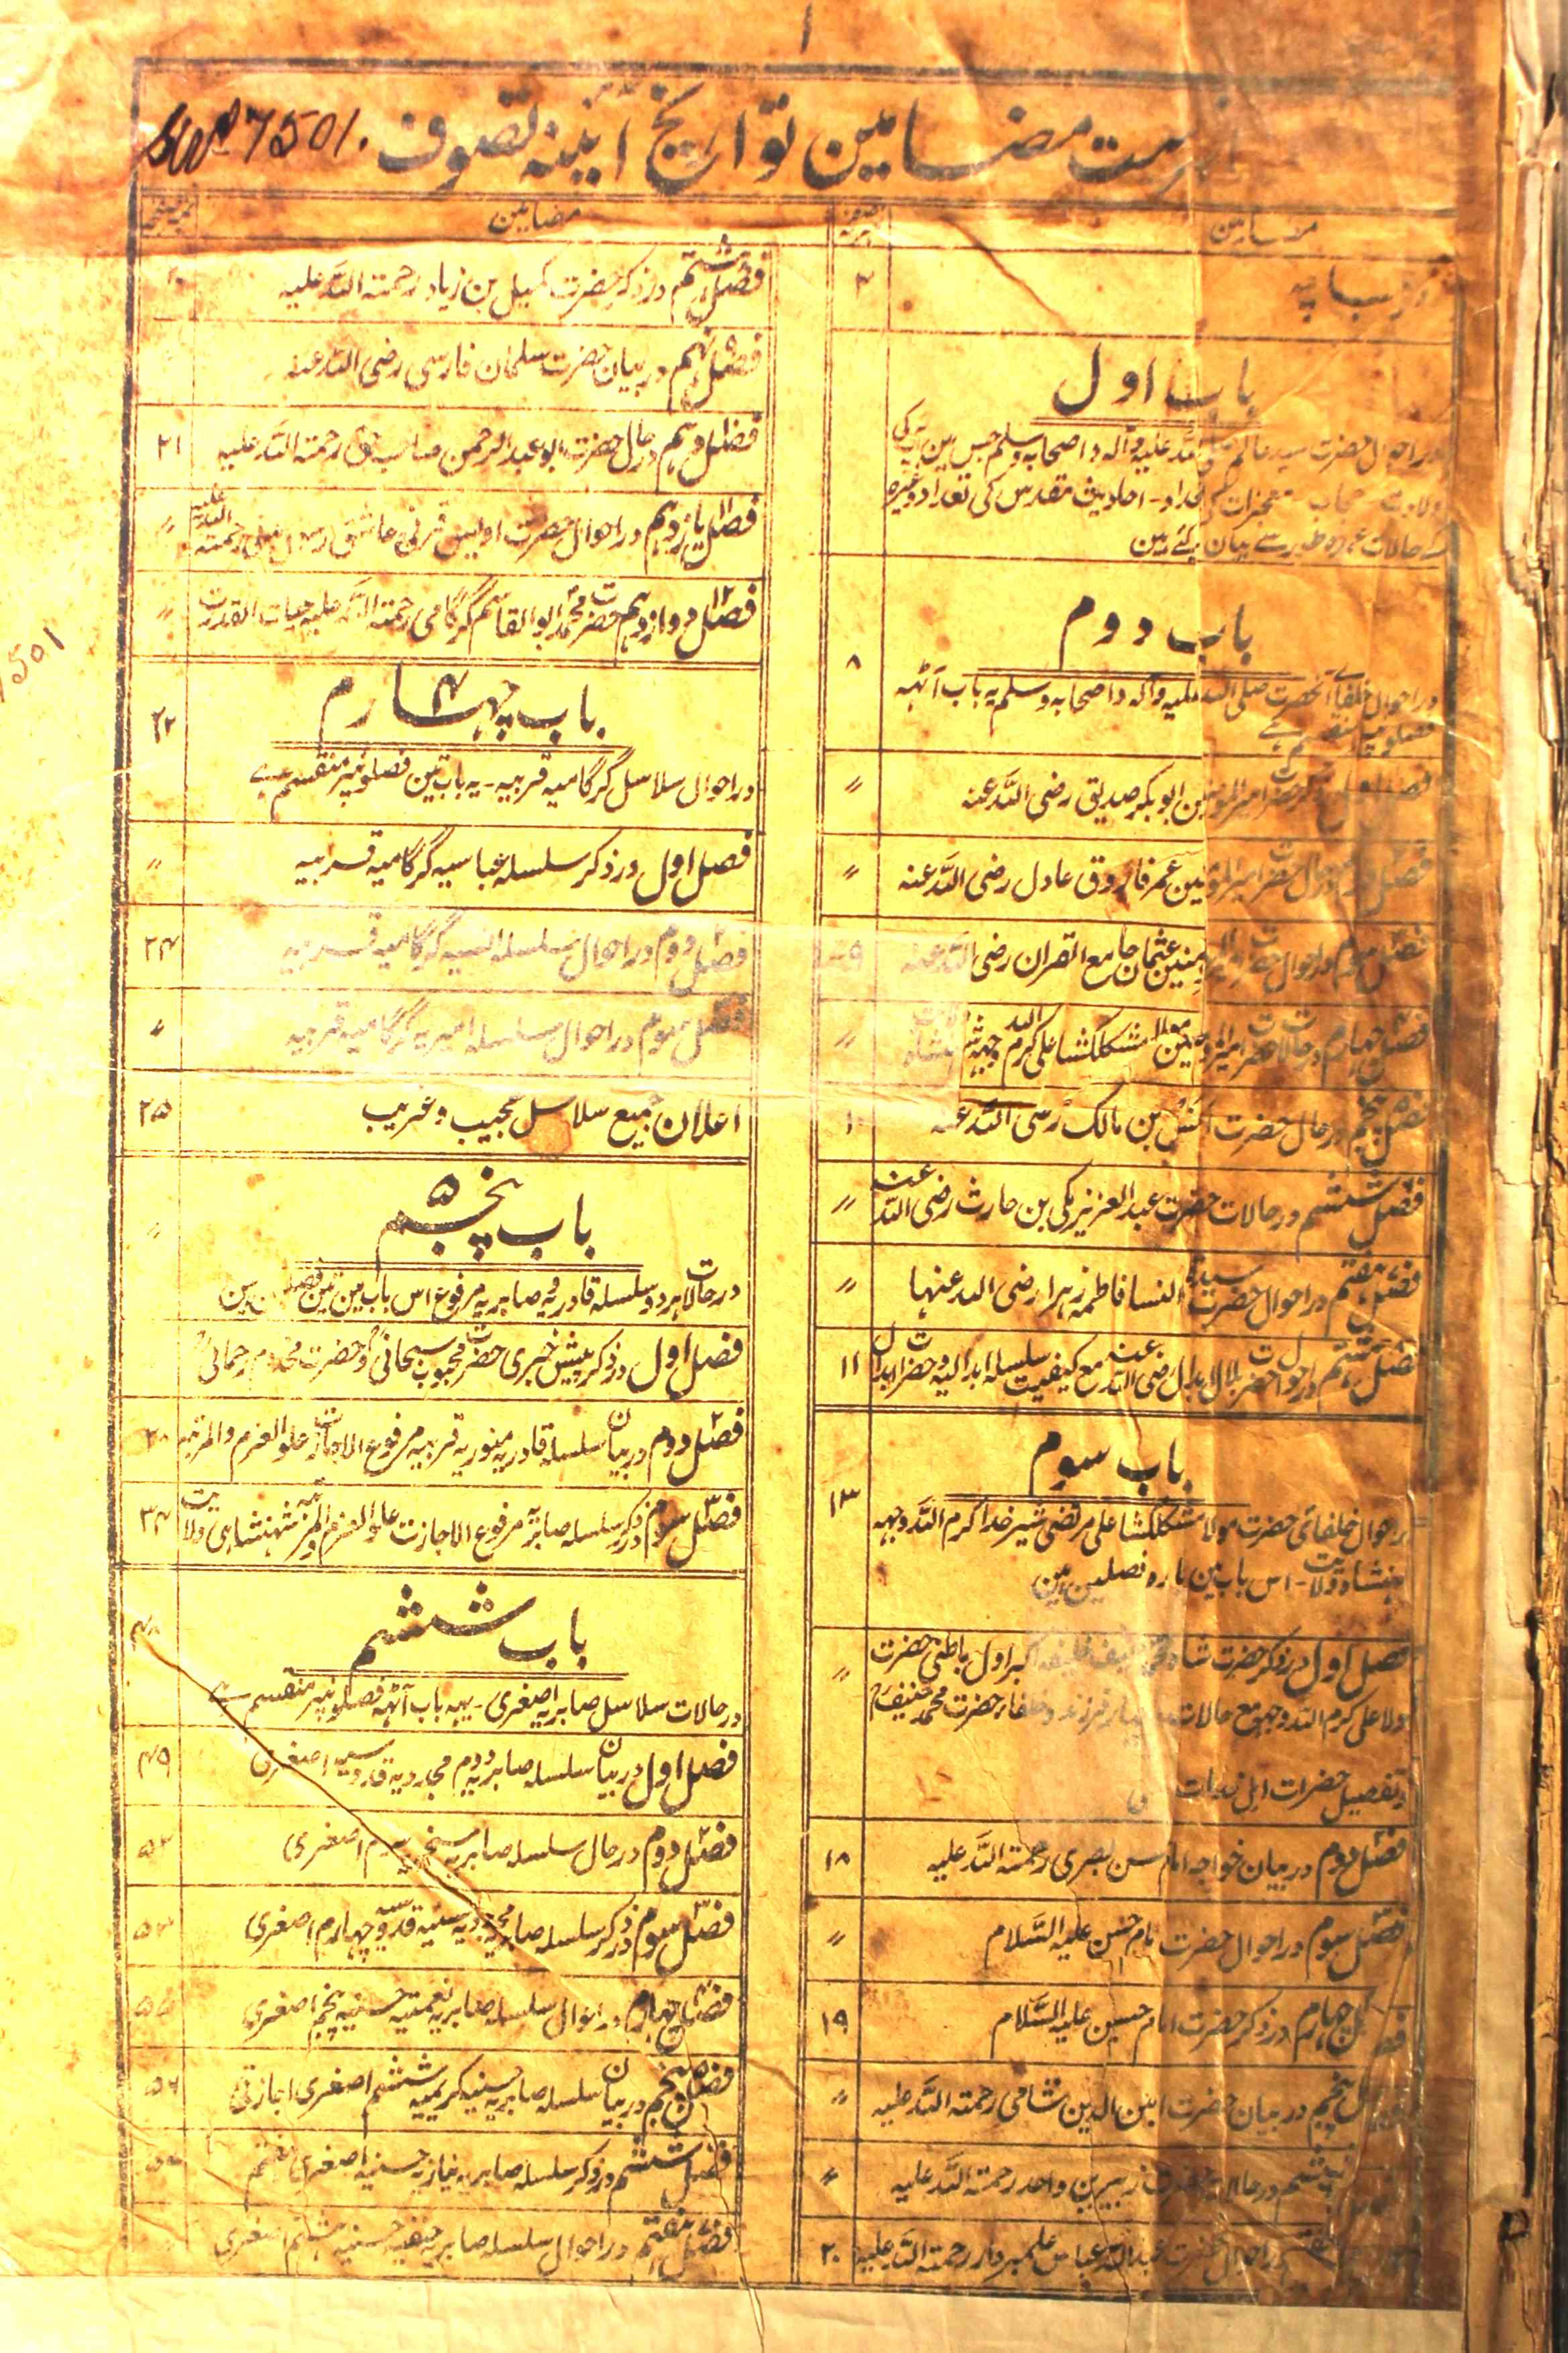 ۱
فہرست مضامین تواریخ آئینہ تصوف
7501.
مضامین
نمبر صفحہ
دیباچہ
۲
باب اول
در احوال حضرت سید عالم صلی اللہ علیہ وآلہ واصحابہ وسلم جس میں آپ کی
ولادت معجزات کی تعداد - احادیث مقدس کی تعداد وغیرہ
کے حالات عمدہ طور سے بیان کئے ہیں
باب دوم
۸
در احوال خلفائے آنحضرت صلی اللہ علیہ وآلہ واصحابہ وسلم یہ باب آٹھہ
فصلونپر منقسم ہے
فصل اول امیر المومنین ابوبکر صدیق رضی اللہ عنہ
〃
فصل دوم در حال حضرت امیر المومنین عمر فاروق عادل رضی اللہ عنہ
〃
فصل سوم در احوال حضرت امیر المومنین عثمان جامع القران رضی اللہ عنہ
۹
فصل چہارم در حالات حضرت امیر المومنین مولا مشکلکشا علی کرم اللہ وجہہ
〃
فصل پنجم در حال حضرت انس بن مالک رضی اللہ عنہ
۱۰
فصل ششم در حالات حضرت عبدالعزیز مکی بن حارث رضی اللہ عنہ
〃
فصل ہفتم در احوال حضرت سیدۃ النسا فاطمہ زہرا رضی اللہ عنہا
〃
فصل ہشتم در احوال حضرت بلال ابدال رضی اللہ عنہ مع کیفیت سلسلہ ابدالیہ وحضرات ابدال
۱۱
باب سوم
۱۳
در احوال خلفائے حضرت مولا مشکلکشا علی مرتضی شیر خدا کرم اللہ وجہہ
شہنشاہ ولایت - اس باب مین بارہ فصلین ہین
فصل اول در ذکر حضرت شاہ محمد حنیف خلیفہ اکبر اول باطنی حضرت
〃
مولا علی کرم اللہ وجہہ مع حالات فرزند وخلفاء حضرت محمد حنیف
وتفصیل حضرات اہل
فصل دوم در بیان خواجہ امام حسن بصری رحمتہ اللہ علیہ
۱۸
فصل سوم در احوال حضرت امام حسن علیہ السلام
〃
فصل چہارم در ذکر حضرت امام حسین علیہ السلام
۱۹
فصل پنجم در بیان حضرت امین الدین شامی رحمتہ اللہ علیہ
〃
فصل ششم در حال حضرت زبیر بن واحد رحمتہ اللہ علیہ
〃
فصل ہفتم در احوال حضرت عبداللہ عباس علمبردار رحمتہ اللہ علیہ
۲۰
مضامین
نمبر صفحہ
فصل ہشتم در ذکر حضرت کمیل بن زیاد رحمتہ اللہ علیہ
۲۰
فصل نہم در بیان حضرت سلمان فارسی رضی اللہ عنہ
فصل دہم در حال حضرت ابو عبدالرحمن رحمتہ اللہ علیہ
۲۱
فصل یازدہم در احوال حضرت اویس قرنی عاشق رسول رحمتہ اللہ علیہ
〃
فصل دوازدہم حضرت محمد ابوالقاسم گرگامی رحمتہ اللہ علیہ حیات القدرت
〃
باب چہارم ۴
۲۲
در احوال سلاسل گرگامیہ قربیہ - یہ باب تین فصلونپر منقسم ہے
فصل اول در ذکر سلسلہ عباسیہ گرگامیہ قربیہ
〃
فصل دوم در احوال سلسلہ گرگامیہ قربیہ
۲۴
فصل سوم در احوال سلسلہ امیریہ گرگامیہ قربیہ
〃
اعلان جمیع سلاسل عجیب وغریب
۲۵
باب پنجم ۵
〃
در حالات ہر دو سلسلہ قادریہ صابریہ مرفوع اس باب مین تین فصلین ہین
فصل اول در ذکر پیش خبری حضرت محبوب سبحانی وحضرت مخدوم رحمانی
فصل دوم در بیان سلسلہ قادریہ منوریہ قربیہ مرفوع الاجازت علو العزم والمرتبہ
فصل سوم در ذکر سلسلہ صابریہ مرفوع الاجازت علو العزم والمرتبہ شہنشاہی ولایت
۳۴
باب ششم
در حالات سلاسل صابریہ اصغری - یہہ باب آٹھہ فصلونپر منقسم ہے
فصل اول در بیان سلسلہ صابریہ دوم مجددیہ قدوسیہ اصغری
۴۹
فصل دوم در حال سلسلہ صابریہ سوم اصغری
فصل سوم در ذکر سلسلہ صابریہ مجددیہ قدوسیہ چہارم اصغری
فصل چہارم در احوال سلسلہ صابریہ نعمتیہ حسنیہ پنجم اصغری
فصل پنجم در بیان سلسلہ صابریہ حسنیہ کریمیہ ششم اصغری اجازتی
۵۶
فصل ششم در ذکر سلسلہ صابریہ نیازیہ حسنیہ اصغری ہفتم
فصل ہفتم در احوال سلسلہ صابریہ حنفیہ حسنیہ ہشتم اصغری